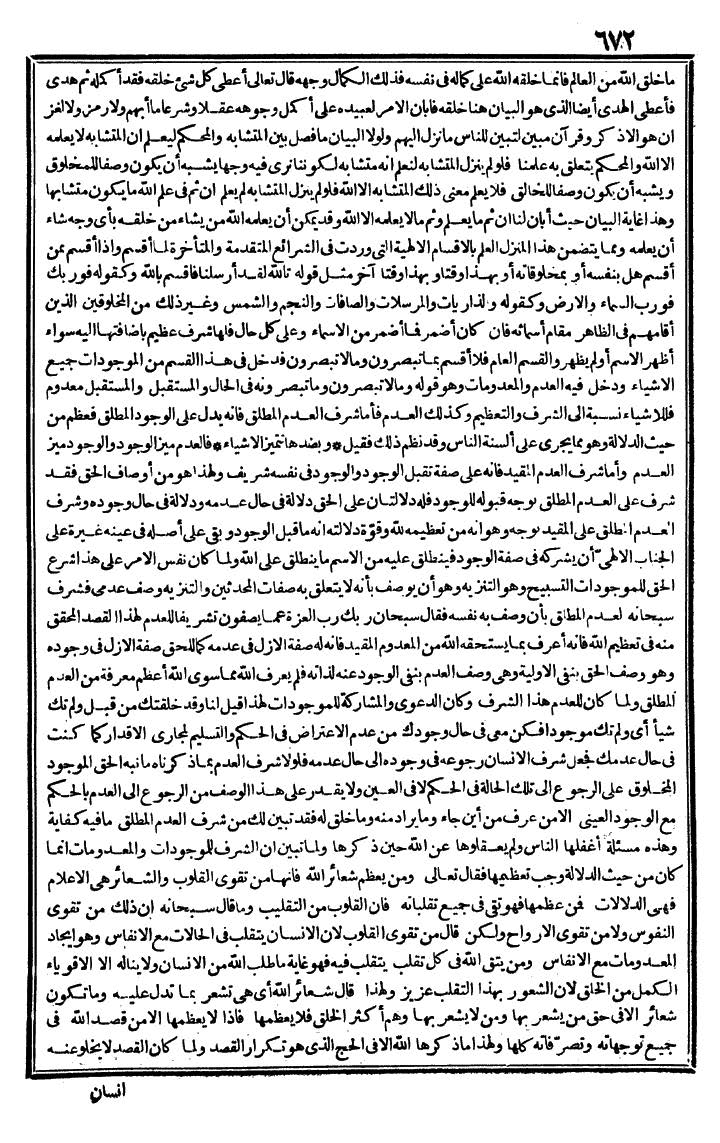 ٦٧٢
ماخلق الله من العالم فانما خلقه الله على كماله فى نفسه فذلك الكمال وجهه قال تعالى أعطى كل شئ خلقه فقد أكمله ثم هدى
فأعطى الهدى أيضا الذى هو البيان هنا خلقه فابان الامر لعبيده على أكمل وجوهه عقلا وشرعا ما أبهم ولا رمز ولا لغز
ان هو الا ذكر وقرآن مبين لتبين للناس ما نزل اليهم ولولا البيان ما فصل بين المتشابه والمحكم ليعلم ان المتشابه لا يعلمه
الا الله والمحكم يتعلق به علمنا فلو لم ينزل المتشابه لنعلم انه متشابه لكوننا نرى فيه وجها يشبه أن يكون وصفا للمخلوق
ويشبه أن يكون وصفا للخالق فلا يعلم معنى ذلك المتشابه الا الله فلو لم ينزل المتشابه لم يعلم ان ثم فى علم الله ما يكون متشابها
وهذا غاية البيان حيث أبان لنا ان ثم ما يعلم وثم ما لا يعلمه الا الله وقد يمكن أن يعلمه الله من يشاء من خلقه بأى وجه شاء
أن يعلمه ومما يتضمن هذا المنزل العلم بالاقسام الالهية التى وردت فى الشرائع المتقدمة والمتأخرة لما أقسم واذا أقسم بمن
أقسم هل بنفسه أو بمخلوقاته أو بهذا وقتا وبهذا وقتا آخر مثل قوله تالله لقد أرسلنا فاقسم بالله وكقوله فوربك
فورب السماء والارض وكقوله والذاريات والمرسلات والصافات والنجم والشمس وغير ذلك من المخلوقين الذين
أقامهم فى الظاهر مقام أسمائه فان كان أضمر فما أضمر من الاسماء وعلى كل حال فلها شرف عظيم باضافتها اليه سواء
أظهر الاسم أو لم يظهر والقسم العام فلا أقسم بما تبصرون وما لا تبصرون فدخل فى هذا القسم من الموجودات جميع
الاشياء ودخل فيه العدم والمعدومات وهو قوله وما لا تبصرون وما تبصرونه فى الحال والمستقبل والمستقبل معدوم
فللاشياء نسبة الى الشرف والتعظيم وكذلك العدم فأما شرف العدم المطلق فانه يدل على الوجود المطلق فعظم من
حيث الدلالة وهو مما يجرى على ألسنة الناس وقد نظم ذلك فقيل * وبضدها تتميز الاشياء * فالعدم ميز الوجود والوجود ميز
العدم وأما شرف العدم المقيد فانه على صفة تقبل الوجود والوجود فى نفسه شريف ولهذا هو من أوصاف الحق فقد
شرف على العدم المطلق بوجه قبوله للوجود فله دلالتان على الحق دلالة فى حال عدمه ودلالة فى حال وجوده وشرف
العدم المطلق على المقيد بوجه وهو انه من تعظيمه لله وقوّة دلالته انه ما قبل الوجود وبقى على أصله فى عينه غيرة على
الجناب الالهى أن يشركه فى صفة الوجود فينطلق عليه من الاسم ما ينطلق على الله ولما كان نفس الامر على هذا شرع
الحق للموجودات التسبيح وهو التنزيه وهو أن يوصف بأنه لا يتعلق به صفات المحدثين والتنزيه وصف عدمى فشرف
سبحانه لعدم المطلق بأن وصف به نفسه فقال سبحان ربك رب العزة عما يصفون تشريفا للعدم لهذا القصد المحقق
منه فى تعظيم الله فانه أعرف بما يستحقه الله من المعدوم المقيد فانه له صفة الازل فى عدمه كما للحق صفة الازل فى وجوده
وهو وصف الحق بنفى الاولية وهى وصف العدم بنفى الوجود عنه لذاته فلم يعرف الله مما سوى الله أعظم معرفة من العدم
المطلق ولما كان للعدم هذا الشرف وكان الدعوى والمشاركة للموجودات لهذا قيل لنا وقد خلقتك من قبل ولم تك
شيأ أى ولم تك موجودا فكن معى فى حال وجودك من عدم الاعتراض فى الحكم والتسليم لمجارى الاقدار كما كنت
فى حال عدمك فجعل شرف الانسان رجوعه فى وجوده الى حال عدمه فلولا شرف العدم بما ذكرناه ما نبه الحق الموجود
المخلوق على الرجوع الى تلك الحالة فى الحكم لا فى العين ولا يقدر على هذا الوصف من الرجوع الى العدم بالحكم
مع الوجود العينى الا من عرف من أين جاء وما يراد منه وما خلق له فقد تبين لك من شرف العدم المطلق ما فيه كفاية
وهذه مسئلة أغفلها الناس ولم يعقلوها عن الله حين ذكرها ولما تبين ان الشرف للموجودات والمعدومات انما
كان من حيث الدلالة وجب تعظيمها فقال تعالى ومن يعظم شعائر الله فانها من تقوى القلوب والشعائر هى الاعلام
فهى الدلالات فمن عظمها فهو تقى فى جميع تقلباته فان القلوب من التقليب وما قال سبحانه ان ذلك من تقوى
النفوس ولا من تقوى الارواح ولكن قال من تقوى القلوب لان الانسان يتقلب فى الحالات مع الانفاس وهو ايجاد
المعدومات مع الانفاس ومن يتق الله فى كل تقلب يتقلب فيه فهو غاية ما طلب الله من الانسان ولا يناله الا الاقوياء
الكمل من الخلق لان الشعور بهذا التقلب عزيز ولهذا قال شعائر الله أى هى تشعر بما تدل عليه وما تكون
شعائر الا فى حق من يشعر بها ومن لا يشعر بها وهم أكثر الخلق فلا يعظمها فاذا لا يعظمها الا من قصد الله فى
جميع توجهاته وتصرّفاته كلها ولهذا ما ذكرها الله الا فى الحج الذى هو تكرار القصد ولما كان القصد لا يخلو عنه
انسان